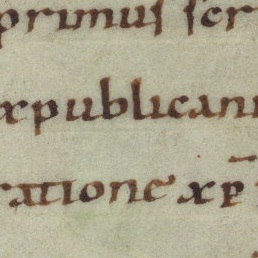 primus ser
xpublicani
ratione xp̄